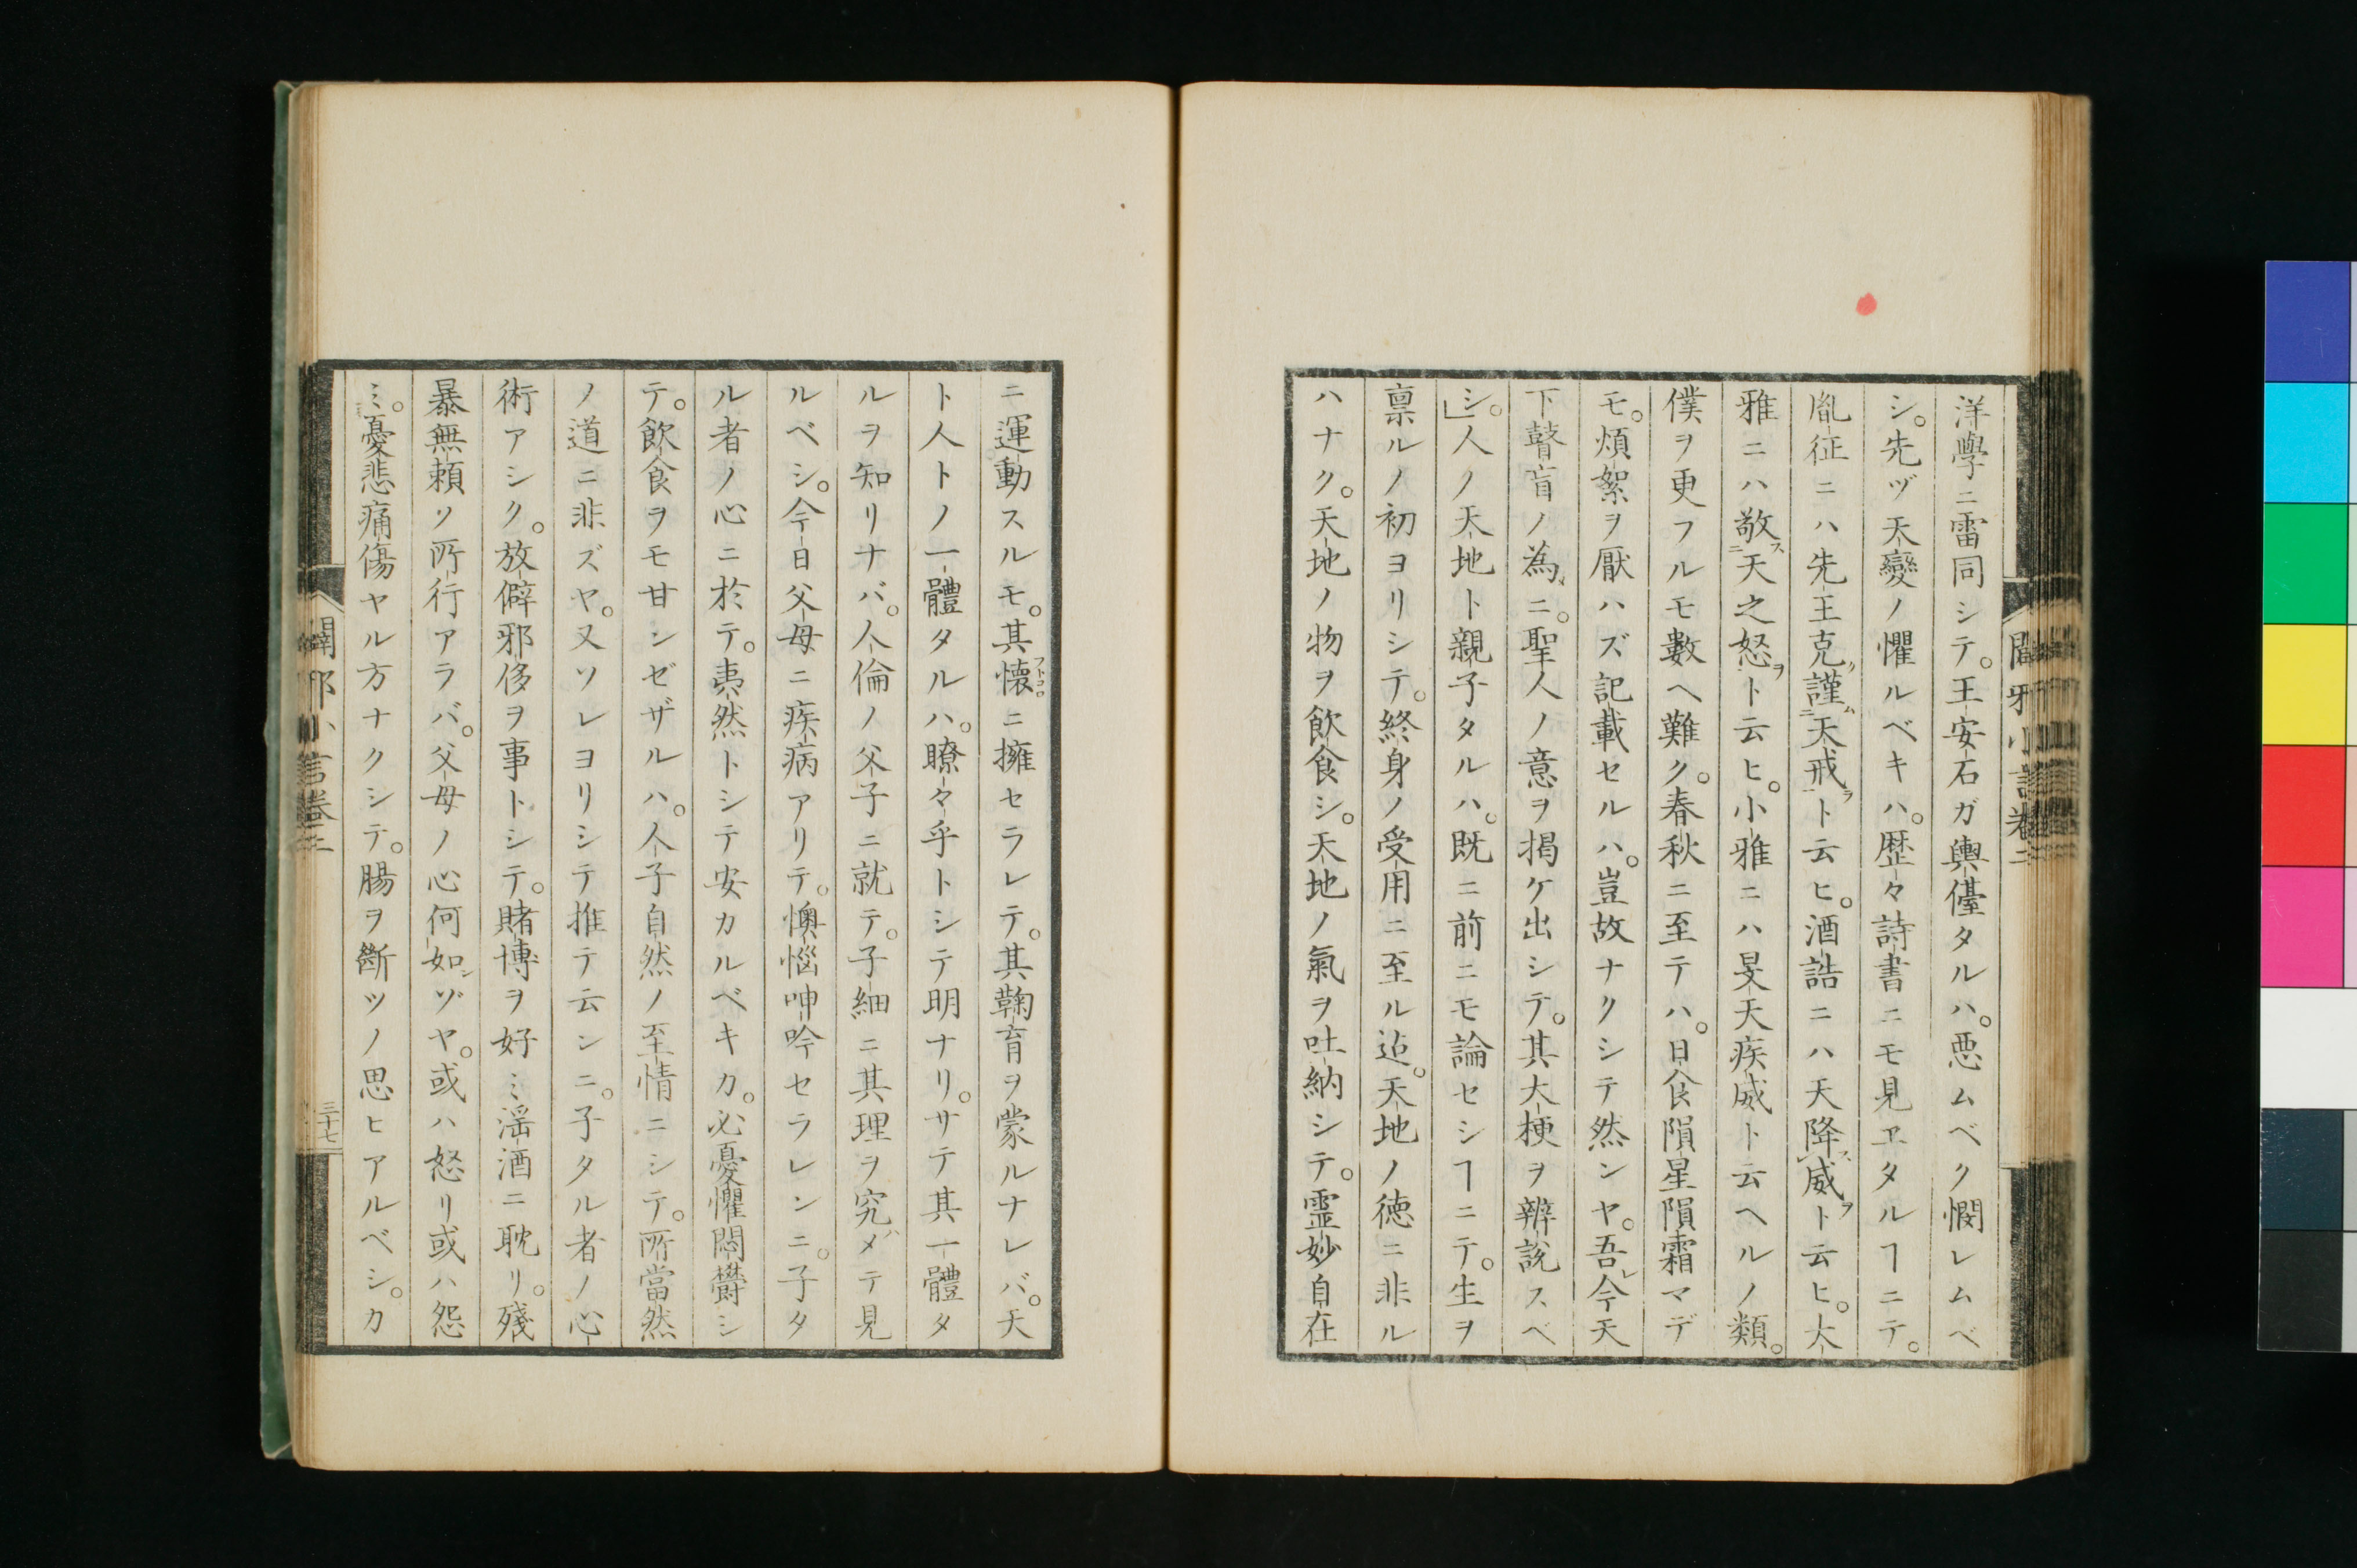 洋學ニ雷同シテ。王安石ガ輿儓タルハ。悪ムベク憫レムベ
シ。先ヅ天變ノ懼ルベキハ。歴々詩書ニモ見ヱタルヿニテ。
胤征ニハ先王克謹天戒ト云ヒ。酒誥ニハ天降威ト云ヒ。大
雅ニハ敬天之怒ト云ヒ。小雅ニハ旻天疾威ト云ヘルノ類。
僕ヲ更フルモ數ヘ難ク。春秋ニ至テハ。日食隕星隕霜マデ
モ。煩絮ヲ厭ハズ記載セルハ。豈故ナクシテ然ンヤ。吾今天
下瞽盲ノ為ニ。聖人ノ意ヲ掲ケ出シテ。其大梗ヲ辨説スベ
シ。」人ノ天地ト親子タルハ。既ニ前ニモ論セシヿニテ。生ヲ
禀ルノ初ヨリシテ。終身ノ受用ニ至ル迠。天地ノ徳ニ非ル
ハナク。天地ノ物ヲ飲食シ。天地ノ氣ヲ吐納シテ。霊妙自在
闢邪小言巻二
ニ運動スルモ。其懐ニ擁セラレテ。其鞠育ヲ蒙ルナレバ。天
フトコロ
ト人トノ一體タルハ。瞭々乎トシテ明ナリ。サテ其一體タ
ルヲ知リナバ。人倫ノ父子ニ就テ。子細ニ其理ヲ究メテ見
ルベシ。今日父母ニ疾病アリテ。懊惱呻吟セラレンニ。子タ
ル者ノ心ニ於テ。夷然トシテ安カルベキカ。必憂懼悶欝シ
テ。飲食ヲモ甘ンゼザルハ。人子自然ノ至情ニシテ。所當然
ノ道ニ非ズヤ。又ソレヨリシテ推テ云ンニ。子タル者ノ心
術アシク。放僻邪侈ヲ事トシテ。賭博ヲ好ミ滛酒ニ耽リ。殘
暴無頼ノ所行アラバ。父母ノ心何如ゾヤ。或ハ怒リ或ハ怨
ミ。憂悲痛傷ヤル方ナクシテ。腸ヲ斷ツノ思ヒアルベシ。カ
闢邪小言巻二
三十七